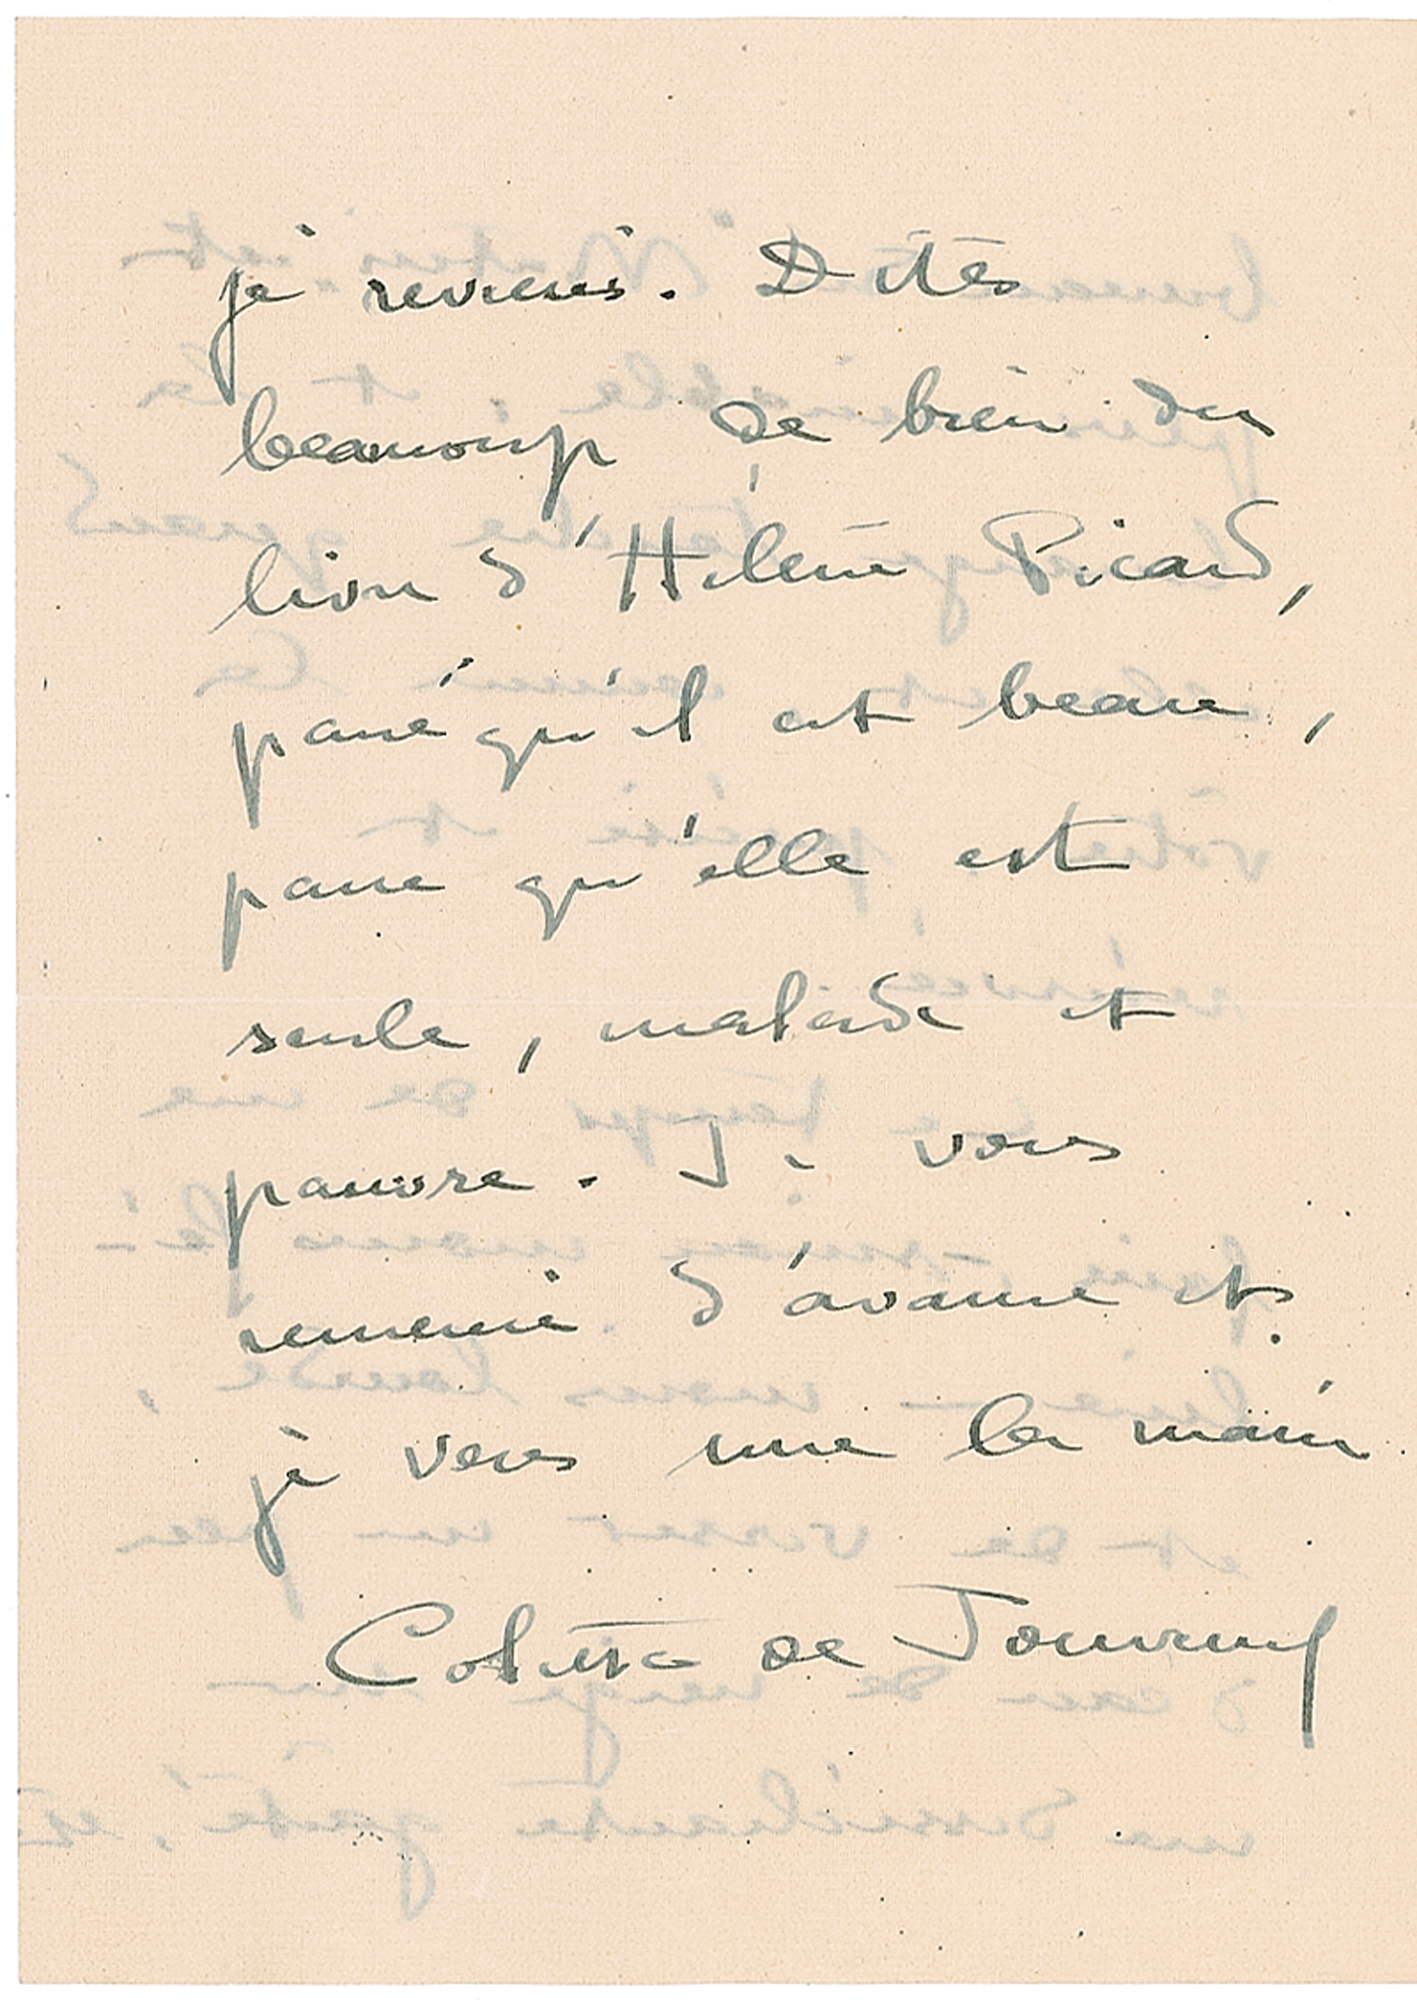 je reviens. Dites
beaucoup de bien du
livre d'Hélène Picard,
parce qu'il est beau,
parce qu'elle est
seule, malade et
pauvre. Je vous
remercie d'avance et
je vous serre la main
Colette de Jouvenel